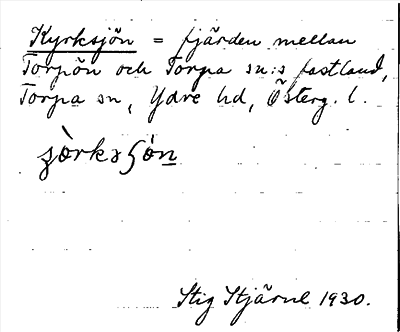 Kyrksjön = fjärden mellan
Torpön och Torpa sn:s fastland,
Torpa sn, Ydre hd, Österg. l.
Stig Stjärne 1930.